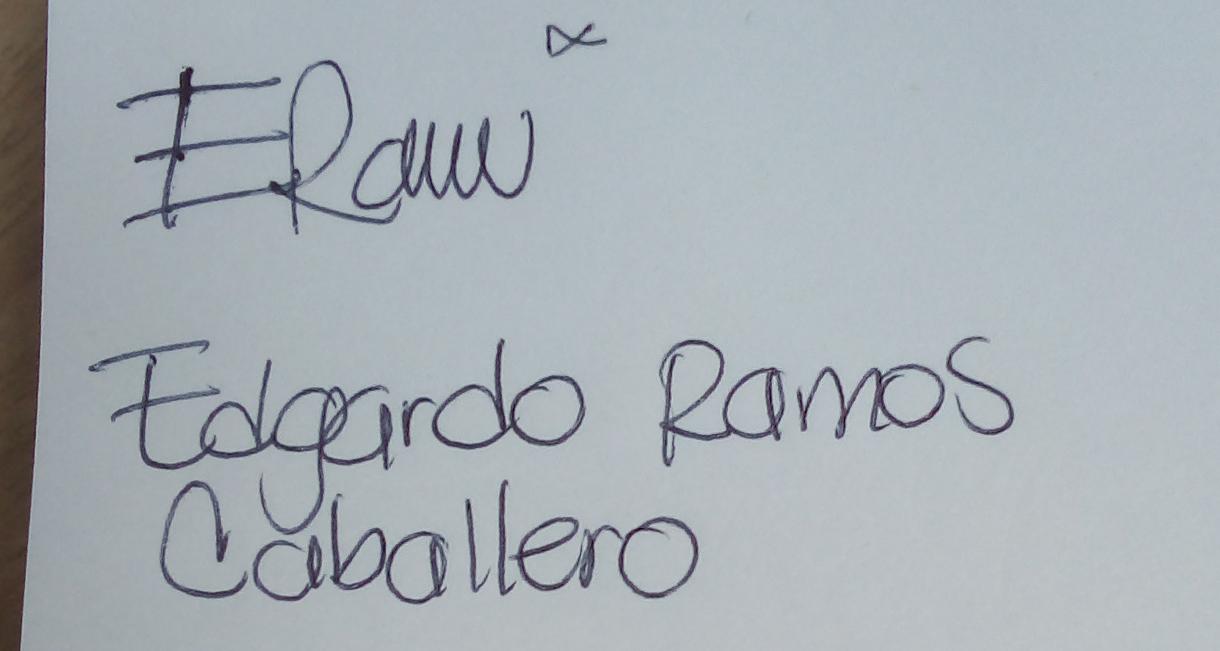 Edgardo Ramos
Caballero